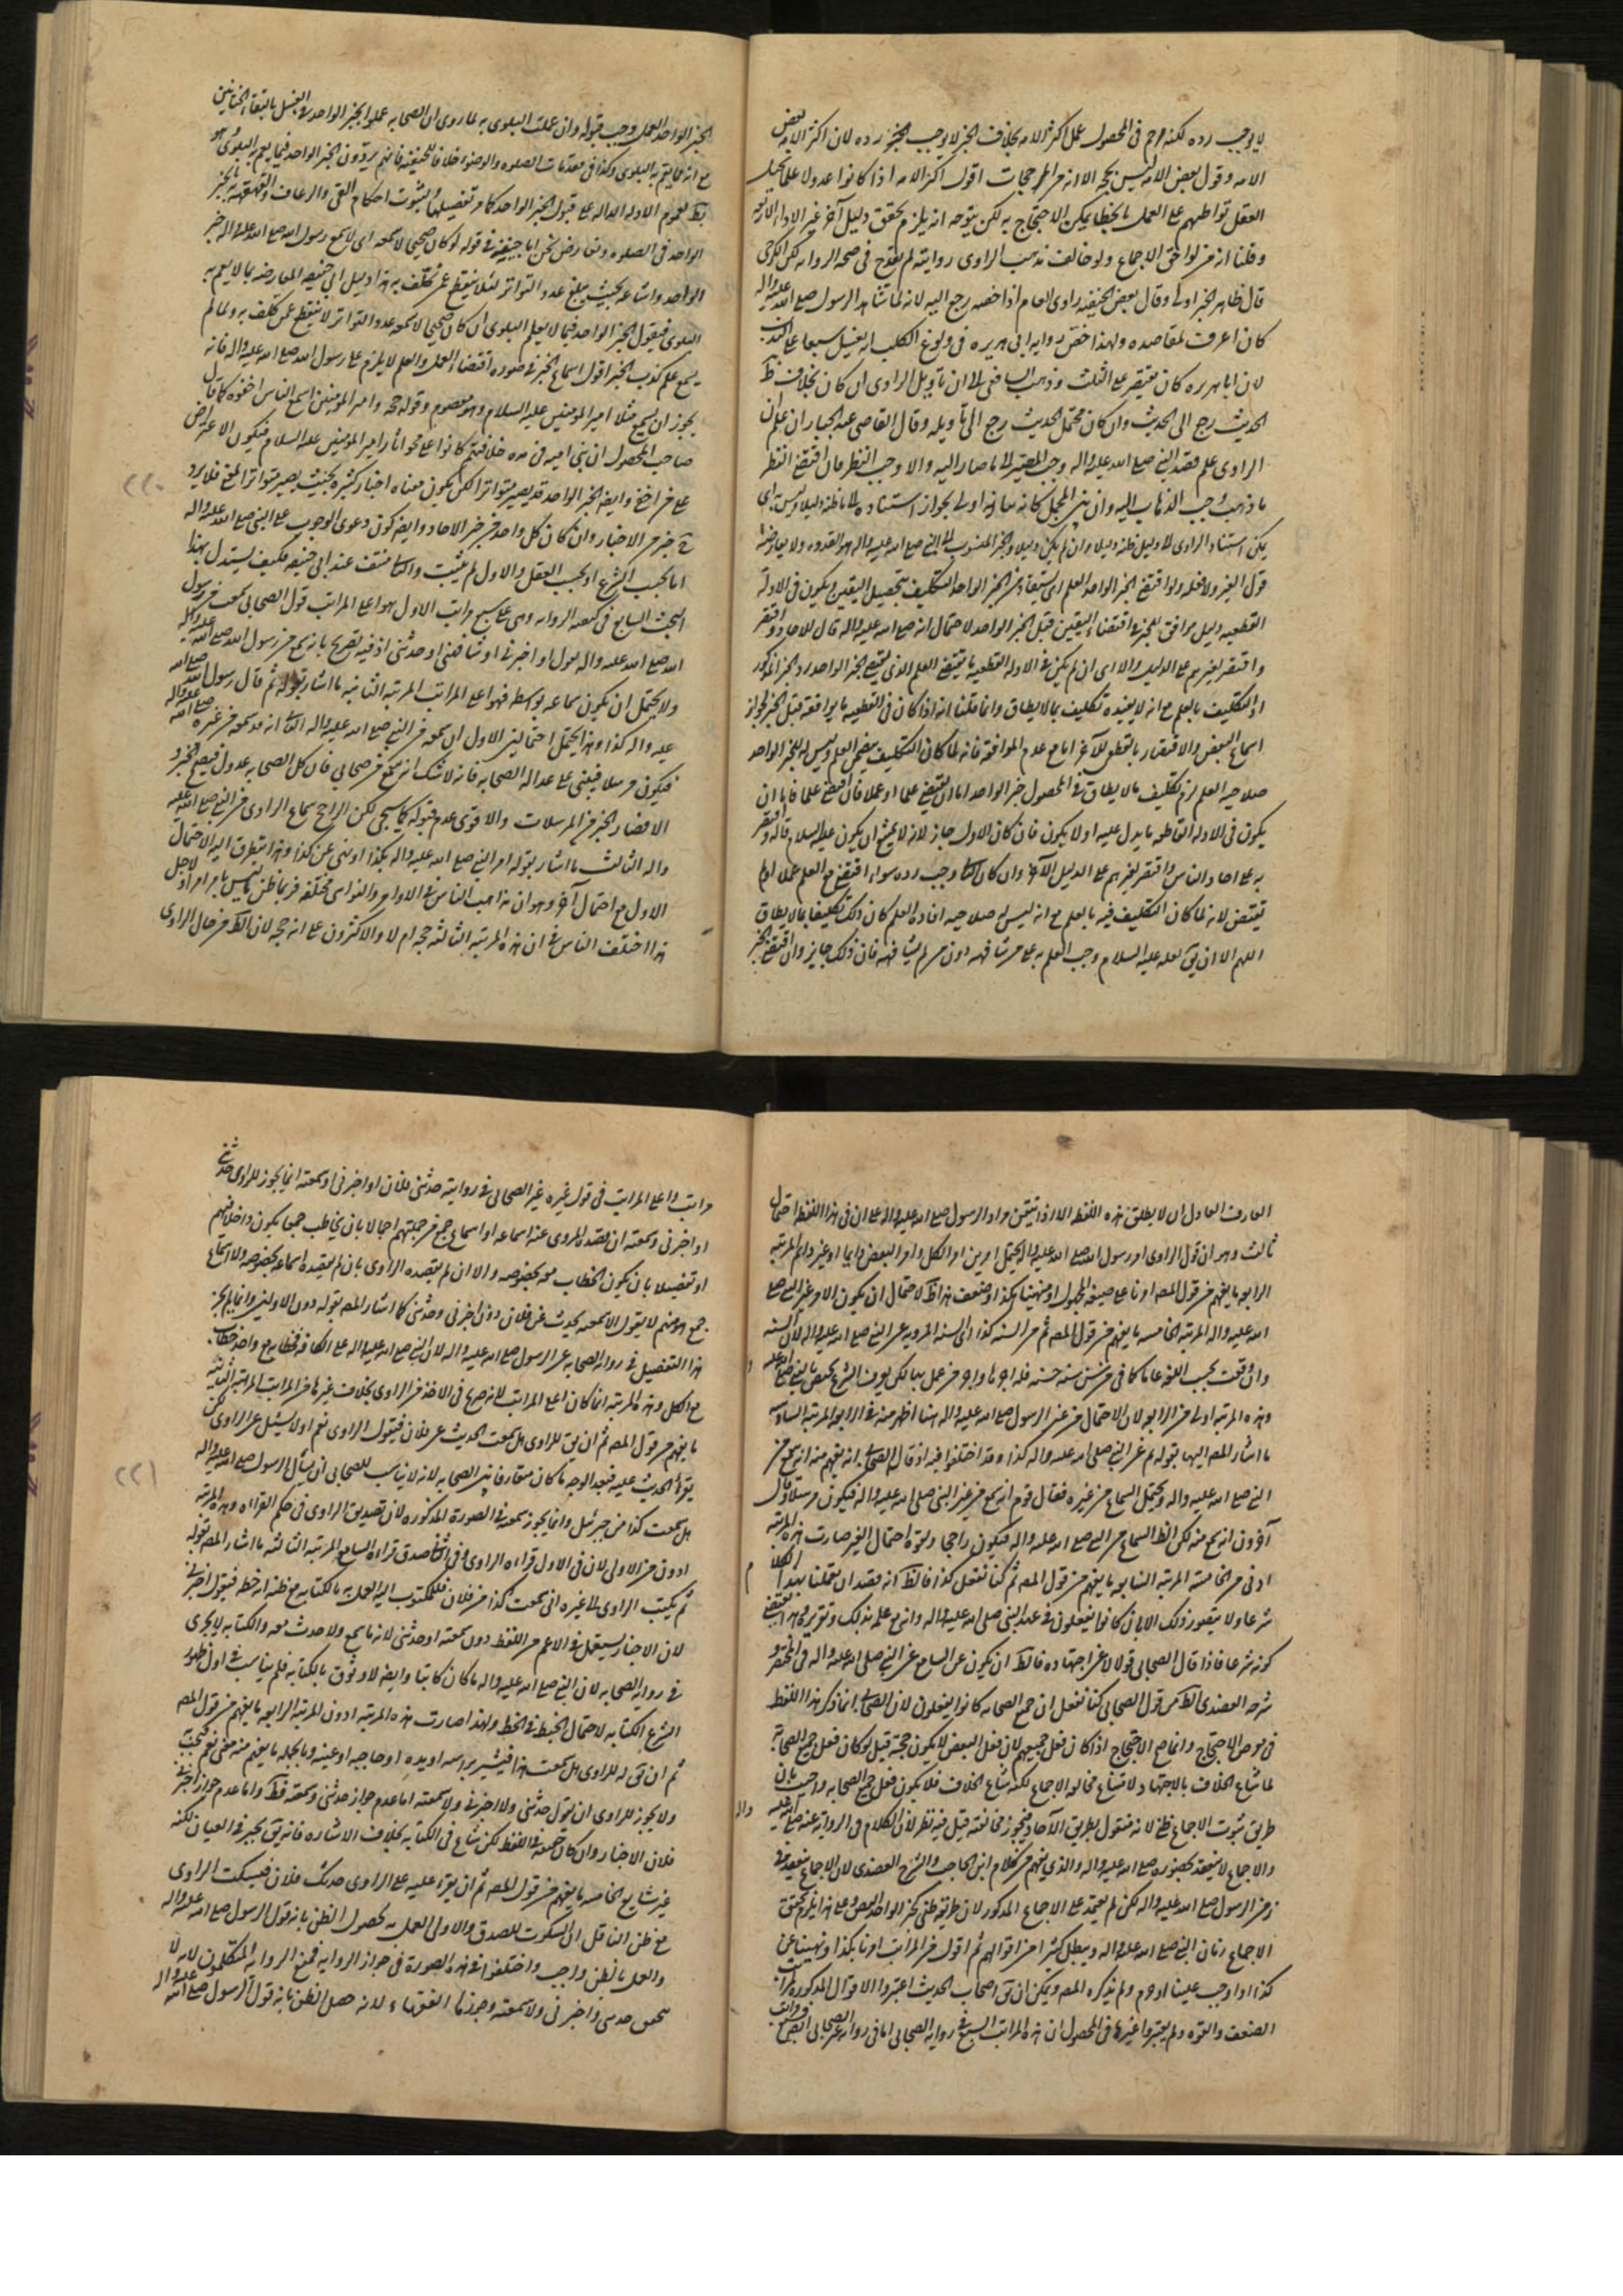 لا يوجب رده لكنه مرجح فى المحصول عمل اكثر الامه بخلاف الخبر لا يوجب رده لان اكثر الامه بعض
الامه وقول بعض الامه ليس بحجه الا انه من المرجحات اقول اكثر الامه اذا كانوا عدولا
العقل تواطهم على العمل بالخطا يمكن الاحتجاج به لكن يتوجه انه يلزم تحقق دليل آخر غير الادله
وقلنا انه من لواحق الاجماع ولو خالف مذهب الراوى روايته لم يقدح فى صحه الروايه لكن الكرخى
قال ظاهر الخبر اولى وقال بعض الحنفيه راوى العام اذا خصه رجع اليه لانه لما شاهد الرسول صلى الله عليه واله
كان اعرف بمقاصده ولهذا خص روايه ابى هريره فى ولوغ الكلب انه يغسل سبعا
لان ابا هريره كان يقتصر على الثلث وذهب الشافعى الى ان تاويل الراوى ان كان بخلاف ظ
الحديث رجع الى الحديث وان كان محتمل الحديث رجع الى تاويله وقال القاضى عبد الجبار ان علم ان
الراوى علم قصد النبى صلى الله عليه واله وجب المصير الى ما صار اليه والا وجب النظر فان اقتضى النظر
ما ذهب وجب الذهاب اليه
يمكن استناد الراوى الى دليل ظنه دليلا وان لم يكن دليلا والخبر المنسوب الى النبى صلى الله عليه واله هو القدوه ولا يعارضه
قول الغير ولا فعله ولو اقتضى الخبر الواحد العلم اى استفاد من الخبر الواحد التكليف بتحصيل اليقين ويكون فى الادله
القطعيه دليل موافق للخبر فى اقتضاء اليقين قبل الخبر الواحد لاحتمال انه صلى الله عليه واله قال للاحاد واقتصر
واقتصر لغيرهم على الدليل والا اى ان لم يكن فى الادله القطعيه ما يقتضى العلم الذى يقتضيه الخبر الواحد رد الخبر المذكور
اذ التكليف بالعلم مع انه لا يفيده تكليف بما لا يطاق وانما قلنا انه اذا كان فى القطعيه ما يوافقه قبل الخبر لجواز
اسماع البعض والاقتصار بالقطعى للآخر اما مع عدم الموافقه فانه لما كان التكليف بالعلم وليس للخبر الواحد
صلاحيه العلم لزم تكليف ما لا يطاق فى المحصول خبر الواحد اما ان يقتضى علما او عملا فان اقتضى علما فاما ان
يكون فى الادله القاطعه ما يدل عليه او لا يكون فان كان الاول جاز لانه لا يمتنع ان يكون عليه السلام قاله واقتصر
به على احاد الناس واقتصر لغيرهم على الدليل الآخر وان كان الثانى وجب رده سواء اقتضى مع العلم عملا او لم
يقتض لانه لما كان التكليف فيه بالعلم مع انه ليس له صلاحيه افاده العلم كان ذلك تكليفا بما لا يطاق
اللهم الا ان يق لعله عليه السلام وجب العلم به على من شافهه دون من لم يشافهه فان ذلك جايز وان اقتضى الخبر
الخبر الواحد العمل وجب قبوله وان عملت البلوى به لما روى ان الصحابه عملوا بخبر الواحد فى الغسل بالتقاء الختانين
مع انه مما يعم به البلوى وكذا فى مقدمات الصلوه والوضوء خلافا للحنفيه فانهم يردون الخبر الواحد فيما يعم به البلوى وهو
بط لعموم الادله الداله على قبول الخبر الواحد كما مر تفصيلها ولثبوت احكام القى والرعاف والقهقهه بالخبر
الواحد فى الصلوه وتعارض نحن ابا حنيفه فى قوله لو كان صحيحا لاسمعه اى لاسمع رسول الله صلى الله عليه واله خبر
الواحد واشاعه بحيث يبلغ عدد التواتر لئلا ينقطع عمن كلف به هذا دليل ابى حنيفه المعارضه بما لا يعم به
البلوى فيقول الخبر الواحد فيما لا يعلم البلوى ان كان صحيحا لاسمعه عدد التواتر لا ينقطع عمن كلف به ولما لم
يسمع علم كذب الخبر اقول اسماع الخبر فى صوره اقتضاء العمل والعلم لا يلزم على رسول الله صلى الله عليه واله فانه
يجوز ان يسمع مثلا امير المؤمنين عليه السلام وهو معصوم وقوله حجه وامير المؤمنين اسمع الناس اخفوه كما قال
صاحب المحصول ان بنى اميه فى مده خلافتهم كانوا على محو اثار امير المؤمنين عليه السلام فيكون الاعتراض
على من اخفى وايضا الخبر الواحد قد يصير متواترا لكن يكون معناه اخبار كثيره بحيث يصير متواتر المعنى فلا يرد
خبر من الاخبار وان كان كل واحد من خبر الاحاد وايضا كون دعوى الوجوب على النبى صلى الله عليه واله
اما بحسب الشرع او بحسب العقل والاول لم يثبت والثانى منتف عند ابى حنيفه فكيف يستدل بهذا
البحث السابع فى كيفيه الروايه وهى على سبع مراتب الاول هو اعلى المراتب قول الصحابى سمعت من رسول
الله صلى الله عليه واله يقول او اخبرنى او شافهنى او حدثنى اذ فيه تصريح بانه سمع من رسول الله صلى الله عليه واله
ولا يحتمل ان يكون سماعه بواسطه فهو اعلى المراتب المرتبه الثانيه ما اشار بقوله ثم قال رسول الله صلى الله
عليه واله كذا وهذا يحتمل احتمالين الاول ان سمعه من النبى صلى الله عليه واله الثانى انه قد سمعه من غيره
فيكون مرسلا فيبنى على عداله الصحابه فانه لا شك انه سمع من صحابى فان كل الصحابه عدول
الا فصار الخبر من المرسلات والاقوى عدم قبوله كما سيجى لكن الراجح سماع الراوى من النبى صلى الله عليه
واله الثالث ما اشار بقوله امر النبى صلى الله عليه واله بكذا او نهى عن كذا وهذا يتطرق اليه الاحتمال
الاول مع احتمال آخر وهو ان مذاهب الناس فى الاوامر والنواهى مختلفه فربما ظن ما ليس بامر امرا ولاجل
هذا اختلف الناس فى ان هذه المرتبه الثالثه حجه ام لا والاكثرون على انه حجه لان الظ من حال الراوى
٢٢٠
العارف العادل ان لا يطلق هذه اللفظ الا اذا تيقن مراد الرسول صلى الله عليه واله على ان فى هذا اللفظ احتمال
ثالث وهو ان قول الراوى امر رسول الله صلى الله عليه واله يحتمل امرين امر الكل وامر البعض دايما او غير دايم المرتبه
الرابعه ما يفهم من قول المصه امرنا على صيغه المجهول او نهينا بكذا وضعف هذا ظ لاحتمال ان يكون الامر غير النبى صلى
الله عليه واله المرتبه الخامسه ما يفهم من قول المصه ثم من السنه كذا اى السنه المرويه عن النبى صلى الله عليه واله لان السنه
وان وقعت بحسب اللغه عاما كما فى من سن سنه حسنه فله اجرها واجر من عمل بها لكن
وهذه المرتبه اولى من الرابعه لان الاحتمال من غير الرسول صلى الله عليه واله هنا اظهر منه فى الرابعه المرتبه السادسه
ما اشار المصه اليها بقوله ثم عن النبى صلى الله عليه واله كذا وقد اختلفوا فيه اذ قال الصحابى انه يفهم منه انه سمع من
النبى صلى الله عليه واله ويحتمل السماع من غيره فقال قوم انه سمع من غير النبى صلى الله عليه واله فيكون مرسلا وقال
آخرون انه سمع منه لكن الظ السماع من النبى صلى الله عليه واله فيكون راجحا ولقوه احتمال الغير صارت هذه المرتبه
ادنى من الخامسه المرتبه السابعه ما يفهم من قول المصه ثم كنا نفعل كذا فالظ انه قصد ان يعلمنا بهذا الكلام
شرعا ولا يتصور ذلك الا بان كانوا يفعلون فى عهد النبى صلى الله عليه واله وانه مع علمه بذلك وتقريره وهذا يقتضى
كونه شرعا فاذا قال الصحابى قولا لا عن اجتهاده فالظ ان يكون عن السماع عن النبى صلى الله عليه واله فى المختصر و
شرحه العضدى الظ من قول الصحابى كنا نفعل ان جميع الصحابه كانوا يفعلون لان الصحابى انما ذكر هذا اللفظ
فى معرض الاحتجاج وانما صح الاحتجاج اذا كان فعل جميعهم لان فعل البعض لا يكون حجه قيل لو كان فعل جميع الصحابه
لما شاع الخلاف بالاجتهاد لامتناع مخالفه الاجماع لكنه شاع الخلاف فلا يكون فعل جميع الصحابه واجيب بان
طريق ثبوت الاجماع ظنى لانه منقول بطريق الآحاد فيجوز مخالفته قيل فيه نظر لان الكلام فى الروايه عنه صلى الله عليه واله
والاجماع لا ينعقد بحضوره صلى الله عليه واله والذى يفهم من كلام ابن الحاجب والشرح العضدى لان الاجماع ينعقد فى
زمن الرسول صلى الله عليه واله لكن لم يعتمد على الاجماع المذكور لان طريقه ظنى كخبر الواحد النص وعلى هذا يلزم تحقق
الاجماع زمان النبى صلى الله عليه واله ويبطل كثيرا من اقوالهم ثم اقول من المراتب امرنا بكذا ونهينا عن
كذا او اوجب علينا او حرم ولم يذكره المصه ويمكن ان يق اصحاب الحديث اعتبروا الاقوال المذكوره لمراتب
الضعف والقوه ولم يعتبروا غيرها فى المحصول ان هذه المراتب السبع فى روايه الصحابى اما فى روايه غير الصحابى
مراتب واعلى المراتب فى قول غيره غير الصحابى فى روايته حدثنى فلان او اخبرنى او سمعته انما يجوز للراوى حدثنى
او اخبرنى وسمعته ان قصد المروى عنه اسماعه او اسماع جمع من جملتهم اجمالا بان يخاطب جمعا يكون داخلا فيهم
او تفصيلا بان يكون الخطاب معه بخصوصه والا ان لم يقصده الراوى بان لم يقصده اسماعه بخصوصه ولا اسماع
جمع هو منهم لا يقول الا سمعته يحدث عن فلان دون اخبرنى وحدثنى كما اشار المصه بقوله دون الاولين وانما لم يجز
هذا التفصيل فى روايه الصحابه عن الرسول صلى الله عليه واله لان النبى صلى الله عليه واله على الكافه فخطابه مع واحد خطاب
مع الكل وهذه المرتبه انما كان اعلى المراتب لانه صرح فى الاخذ من الراوى بخلاف غيرها من المراتب المرتبه الثانيه
ما يفهم من قول المصه ثم ان يق للراوى هل سمعت الحديث عن فلان فيقول الراوى نعم او لا يسئل عن الراوى لكن
يقرأ الحديث عليه فبعد الوجه ما كان متعارفا بين الصحابه لانه لا يناسب للصحابى ان يسأل الرسول صلى الله عليه واله
هل سمعت كذا من جبرئيل وانما يجوز سمعته فى الصوره المذكوره لان تصديق الراوى فى حكم القراءه وهذه المرتبه
ادون من الاولى لان فى الاول قراءه الراوى وفى الثانى صدق قراءه السامع المرتبه الثالثه ما اشار المصه بقوله
ثم يكتب الراوى الى غيره انى سمعت كذا من فلان فللمكتوب اليه العمل به بالكتابه مع ظنه انه خطه فيقول اخبرنى
لان الاخبار يستعمل فى الاعم من اللفظ دون سمعته او حدثنى لانه ما سمع ولا حدث معه والكتابه لا يجرى
فى روايه الصحابه لان النبى صلى الله عليه واله ما كان كاتبا وايضا لا وثوق بالكتابه فلم يناسب فى اول ظهور
الشرع الكتابه لاحتمال الخبط فى الخط ولهذا صارت هذه المرتبه ادون المرتبه الرابعه ما يفهم من قول المصه
ثم ان يق له للراوى هل سمعت هذا فيشير براسه او يده او حاجبه او عينه وبالجمله ما يفهم منه معنى نعم فيجب
ولا يجوز للراوى ان يقول حدثنى ولا اخبرنى ولا سمعته اما عدم جواز حدثنى وسمعته فظ واما عدم جواز اخبرنى
فلان الاخبار وان كان حقيقه فى اللفظ لكن شاع فى الكتابه بخلاف الاشاره فانه يق يخبر فى العيان لكنه
غير شايع الخامسه ما يفهم من قول المصه ثم ان يقراء عليه على الراوى حدثك فلان فيسكت الراوى
مع ظن الناقل ان السكوت للصدق والاولى العمل به لحصول الظن بانه قول الرسول صلى الله عليه واله
والعمل بالظن واجب واختلفوا فى هذه الصوره فى جواز الروايه فمنع الروايه المتكلمون لانه لا
حدثنى واخبرنى ولا سمعته وجوزها الفقهاء لانه حصل الظن بانه قول الرسول صلى الله عليه واله
٢٢١